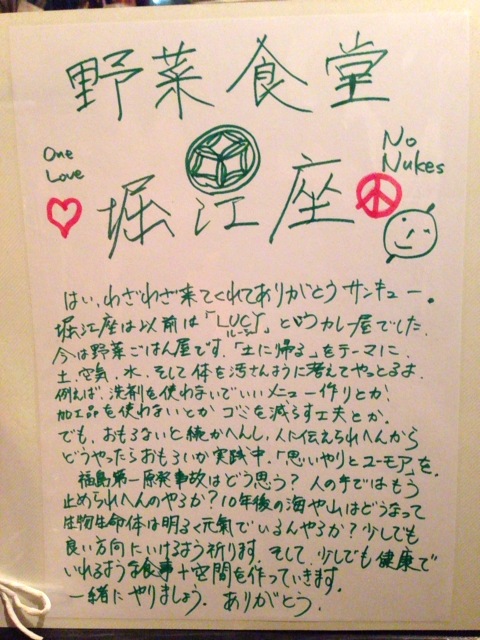 野菜食堂
One
Love
No
Nukes
堀江座
はい、わざわざ来てくれてありがとうサンキュー。
堀江座は以前は「LUCY」というカレー屋でした。
ルーシー
今は野菜ごはん屋です。「土に帰る」をテーマに、
土、空気、水、そして体を汚さんように考えてやっとるよ。
例えば、洗剤を使わないでいいメニュー作りとか、
加工品を使わないとか ゴミを減らす工夫とか。
でも、おもろないと続かへんし、人に伝えられへんから
どうやったらおもろいか実践中。「思いやりとユーモア」を。
福島第一原発事故はどう思う？ 人の手ではもう
止められへんのやろか？ 10年後の海や山はどうなって
生物生命体は明るく元氣でいるんやろか？ 少しでも
良い方向にいけるよう祈ります。そして 少しでも健康で
いれるような食事＋空間を作っていきます。
一緒にやりましょう。 ありがとう。